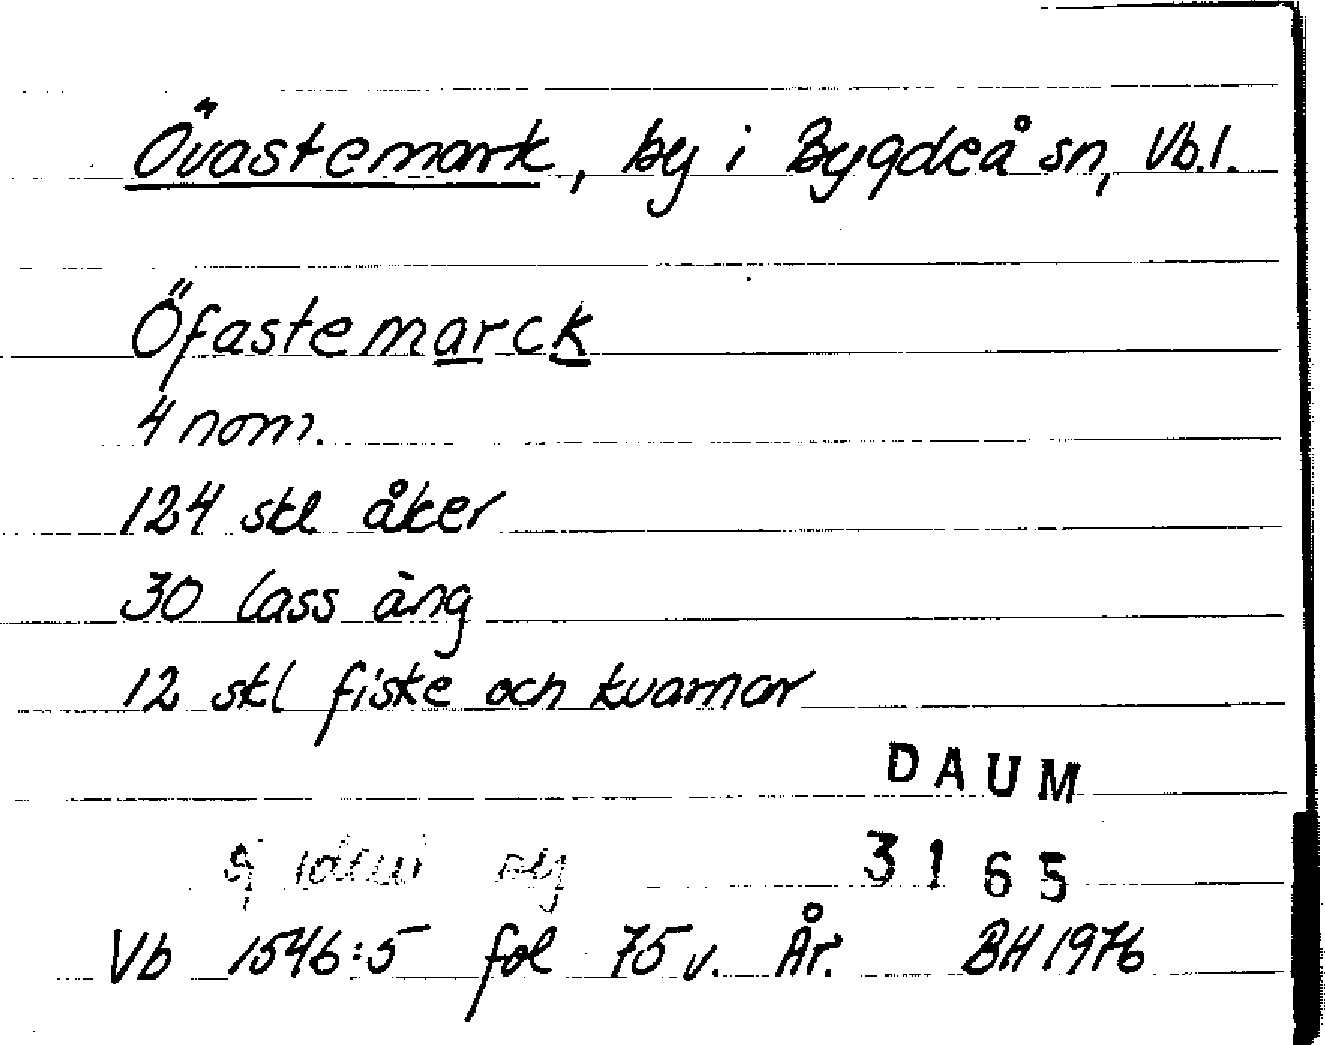 Övastemark, by i Bygdeå sn, Vb.l.
Öfastemarck
4 nom.
124 skl åker
30 lass äng
12 skl fiske och kvarnar
DAUM
3165
Vb 1546:5 fol 75 v. År. BH 1976